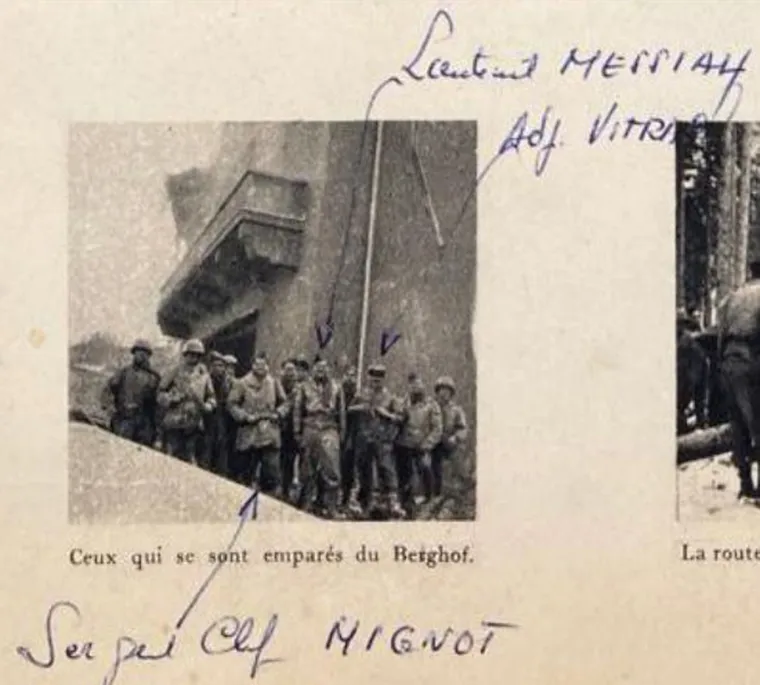 Lieutenant MESSIAH
Adj. VITRAC
Ceux qui se sont emparés du Berghof.
La route
Sergent Chef MIGNOT